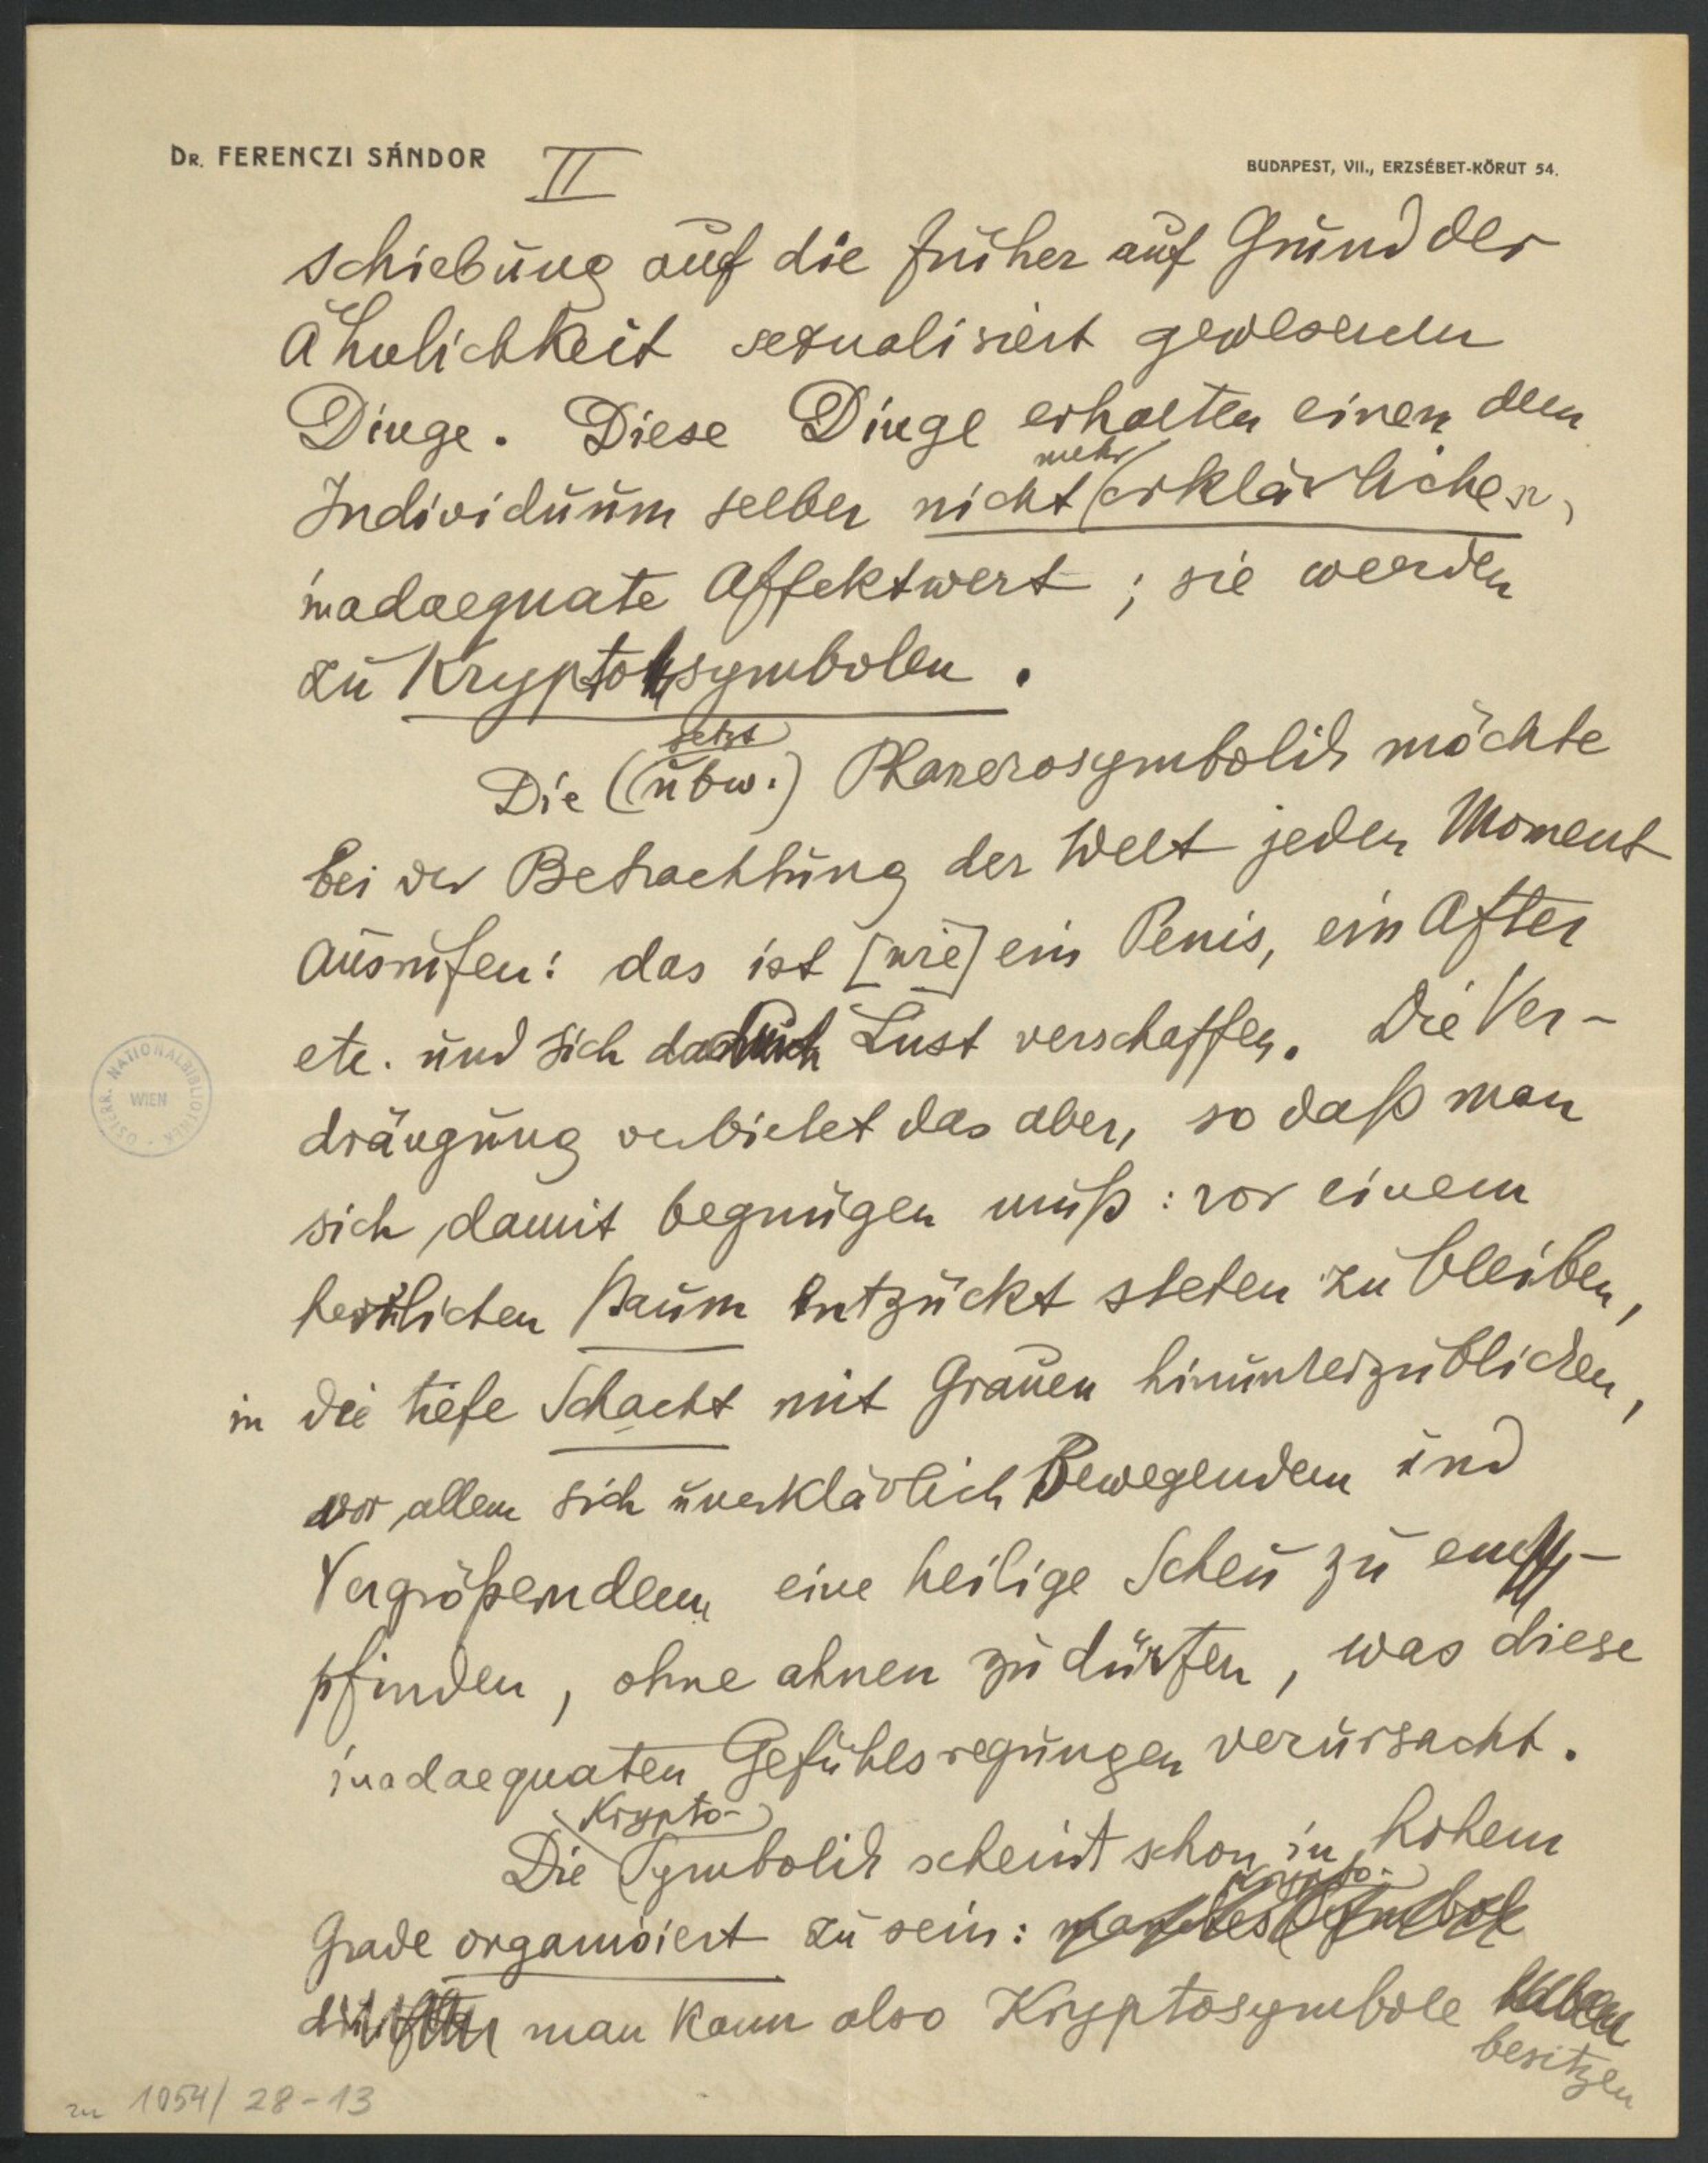 DR. FERENCZI SÁNDOR II BUDAPEST, VII., ERZSÉBET-KÖRUT 54.
schiebung auf die früher auf Grund der
Ähnlichkeit sexualisiert gewesenen
Dinge. Diese Dinge erhalten einen dem
mehr
Individuum selber nicht erklärlichen,
inadaequate Affektwert ; sie werden
zu Kryptosymbolen .
jetzt
Die (ubw.) Phanerosymbolik möchte
bei der Betrachtung der Welt jeden Moment
ausrufen: das ist [wie] ein Penis, ein After
etc. und sich dadurch Lust verschaffen. Die Ver-
drängung verbietet das aber, so daß man
sich damit begnügen muß : vor einem
herrlichen Baum entzückt stehen zu bleiben,
in die tiefe Schacht mit Grauen hinunterzublicken,
vor allem sich unerklärlich Bewegendem und
Vergrößerndem eine heilige Scheu zu em-
pfinden, ohne ahnen zu dürfen, was diese
inadaequaten Gefühlsregungen verursacht.
Krypto-
Die Symbolik scheint schon in hohem
Krypto-
Grade organisiert zu sein: manches Symbol
man kann also Kryptosymbole haben
besitzen
ÖSTERR. NATIONALBIBLIOTHEK · WIEN
zu 1054/28-13